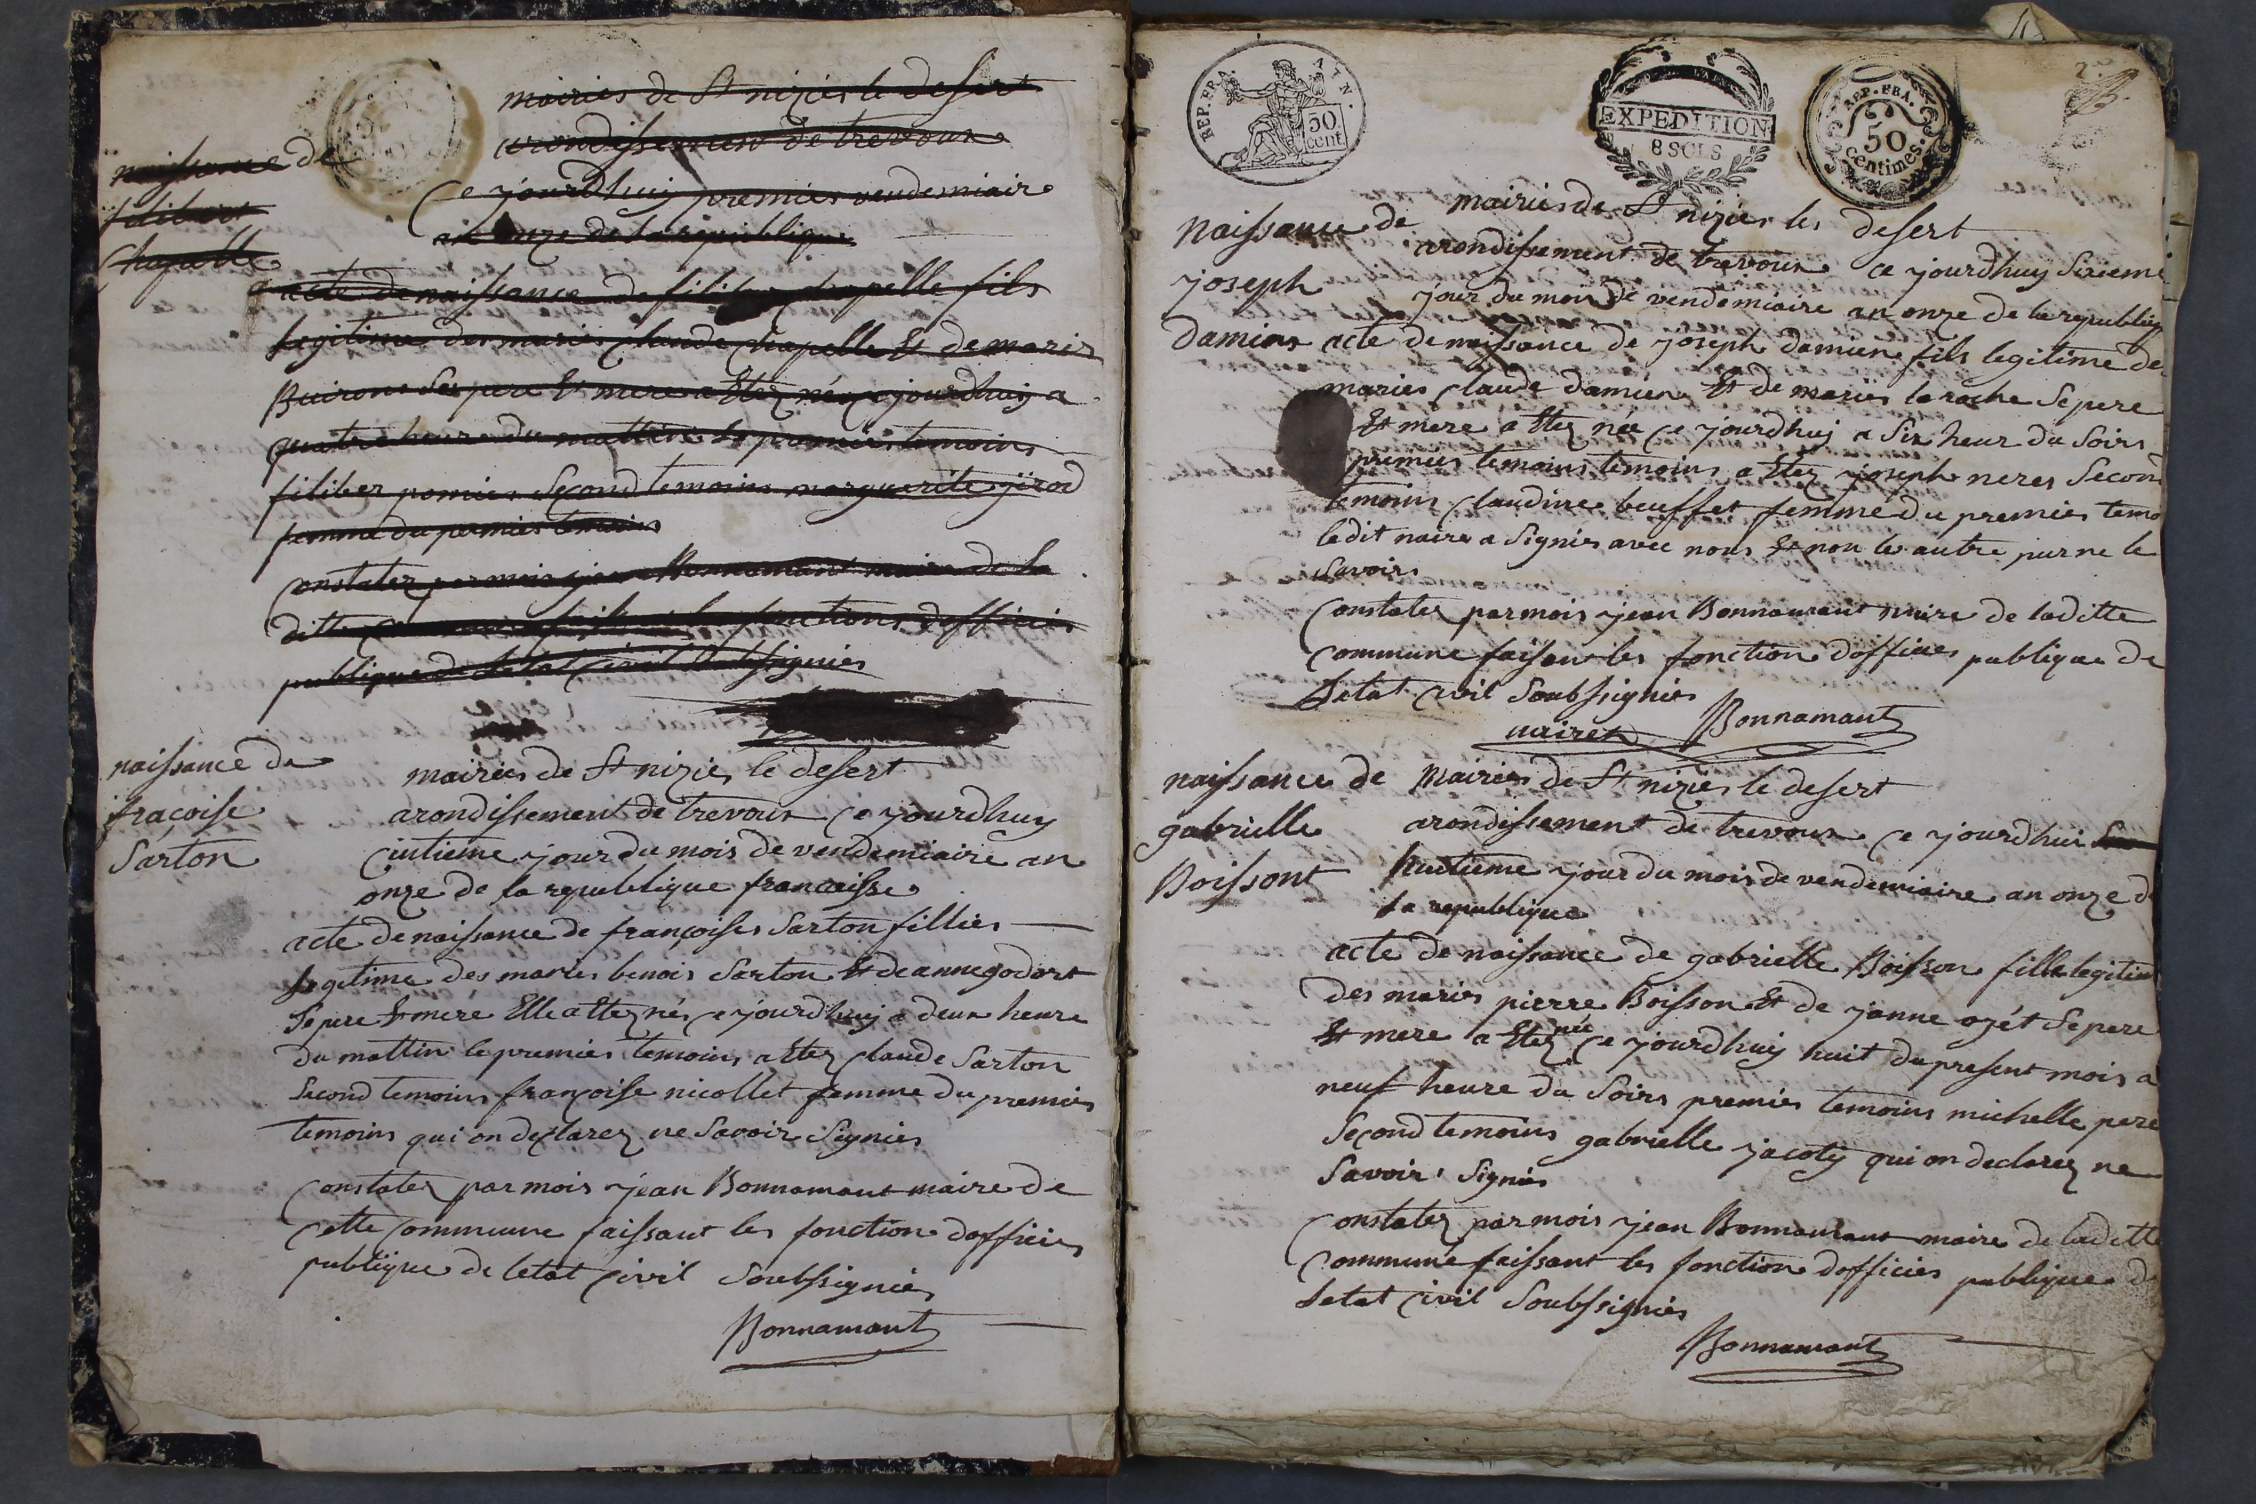 mairies de St nizier le desert
arondissement de trevoux
naissance de
filibert
Chapelle
Ce yourdhuy premier vendemiaire
an onze de la republique
acte de naissance de filiber chapelle fils
legitime des maries claude chapelle Et de marie
Buiron Ses pere Et mere a Etez née ce yourdhuy a
quatre heure du mattin le premier temoins
filiber pomier Second temoins marguerite jirod
femme du premier temoins
Constatez par mois jean Bonnamant maire de la
ditte commune faisant les fonctions dofficier
publique de letat civil Soubssignier
naissance de
fraçoise
Sarton
mairies de St nizier le desert
arondissement de trevoux Ce yourdhuy
Cintieme jour du mois de vendemiaire an
onze de la republique francaisse
acte de naissance de françoises Sarton fillies
legitime des maries benois Sarton Et de anne godart
Se pere Et mere Elle a Etez nés ce yourdhuy a deux heure
du mattin le premier temoins a Etez Claude Sarton
Second temoins françoise nicollet femme du premier
temoins qui on declarez ne Savoir Signier
Constatez par mois jean Bonnamant maire de
Cette Commune faissant les fonction dofficier
publique de letat Civil Soubssignier
Bonnamant
REP. FRA. ATN.
50 cent
EXPEDITION
8 SOLS
REP. FRA.
50
centimes.
2.e
naissance de
joseph
Damien
mairies de St nizier les desert
arondissement de trevoux ce yourdhuy Sixieme
jour du mois de vendemiaire an onze de la republiq
acte de naissance de joseph damien fils legitime de
maries Claude damien Et de maries laroche Se pere
Et mere a Etez née Ce yourdhuy a Six heur du Soirs
premier temoins temoins a Etez joseph neres Secon
temoins Claudine beuffet femme du premier temo
ledit naire a Signier avec nous Et non le autre pur ne le
Savoir
Constatez par mois jean Bonnamant maire de laditte
Commune faisan les fonction dofficier publique de
Letat Civil Soubssignier
nairet Bonnamant
naissance de
gabrielle
Boissont
Mairies de St nizier le desert
arondissement de trevoux Ce yourdhui
huitieme jour du mois de vendemiaire an onze d
La republique
acte de naissance de gabrielle Boisson fille legitim
des maries pierre Boisson Et de janne ogét Se pere
Et mere a Etez née Ce yourdhuy huit du present mois a
neuf heure du Soirs premier temoins michelle pere
Second temoins gabrielle jacoty qui on declarez ne
Savoir Signier
Constatez par mois jean Bonnamant maire de laditte
Commune faissant les fonction dofficier publique d
Letat Civil Soubssignier
Bonnamant